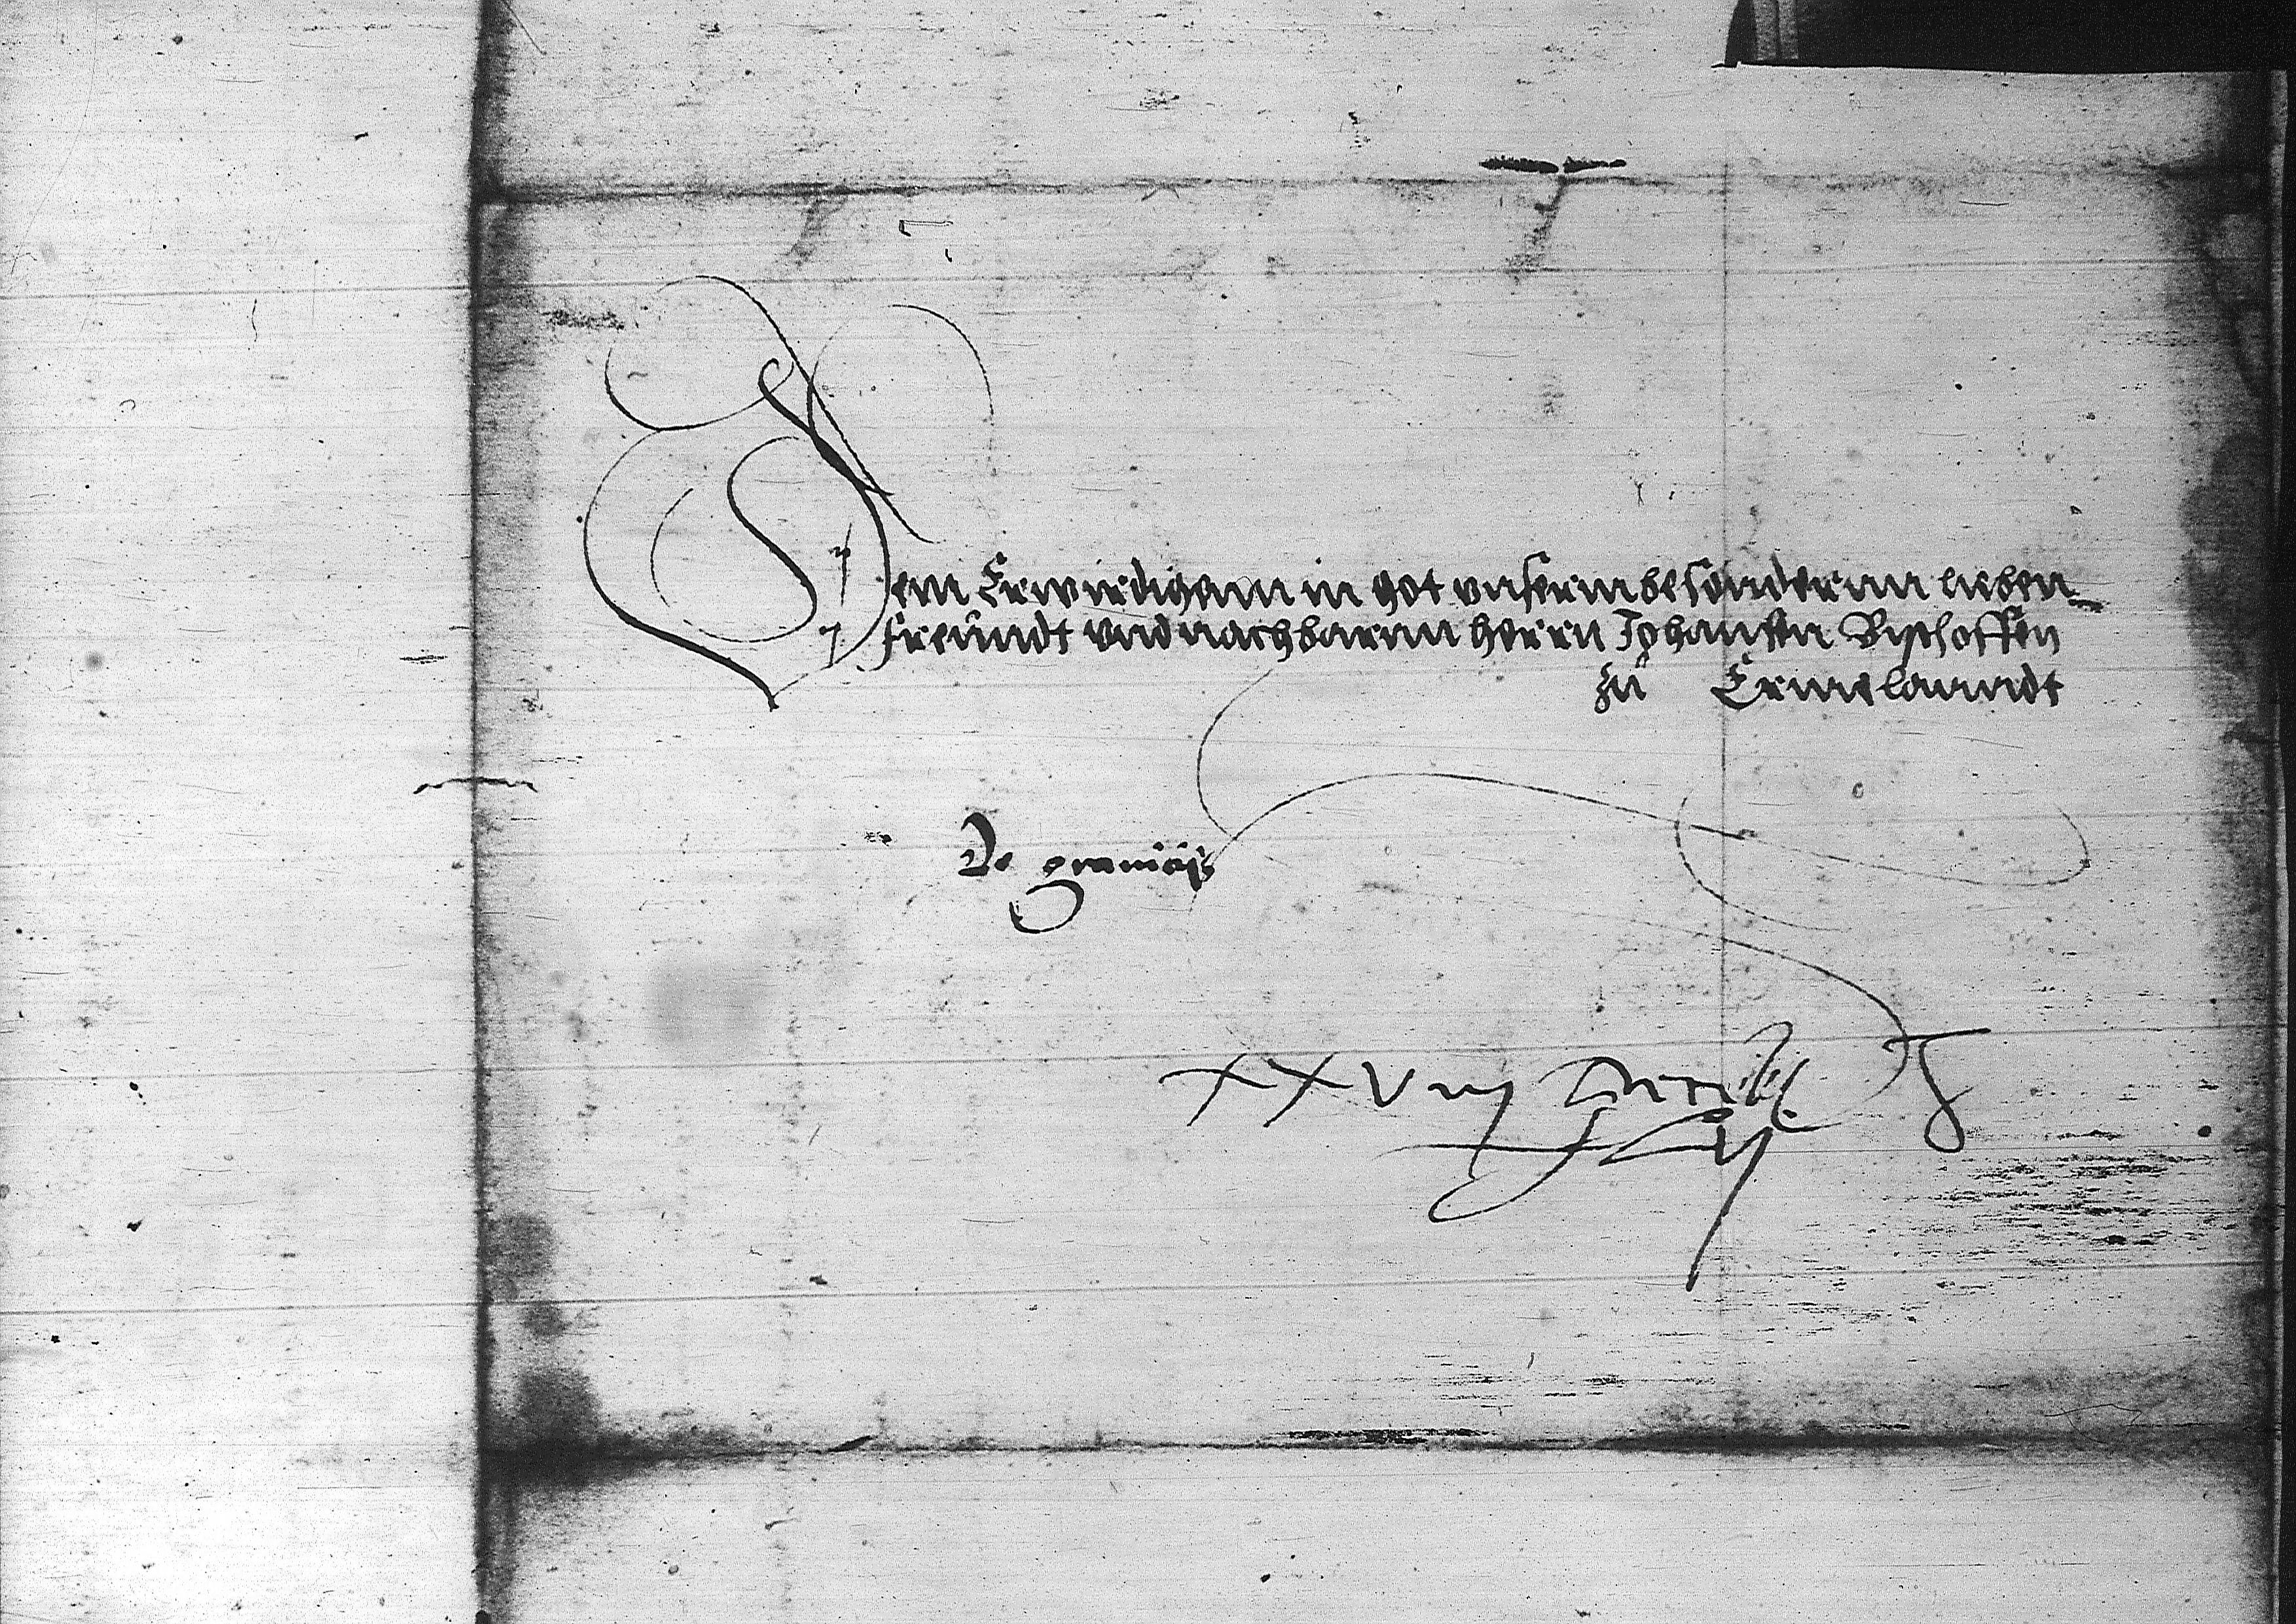 Dem Erwirdigenn in got vnserm besonndernn lieben
freundt vnd nachbarnn herrn Johansen Bischoffen
zu Ermelanndt
De granicijs
XXViij Aprilis